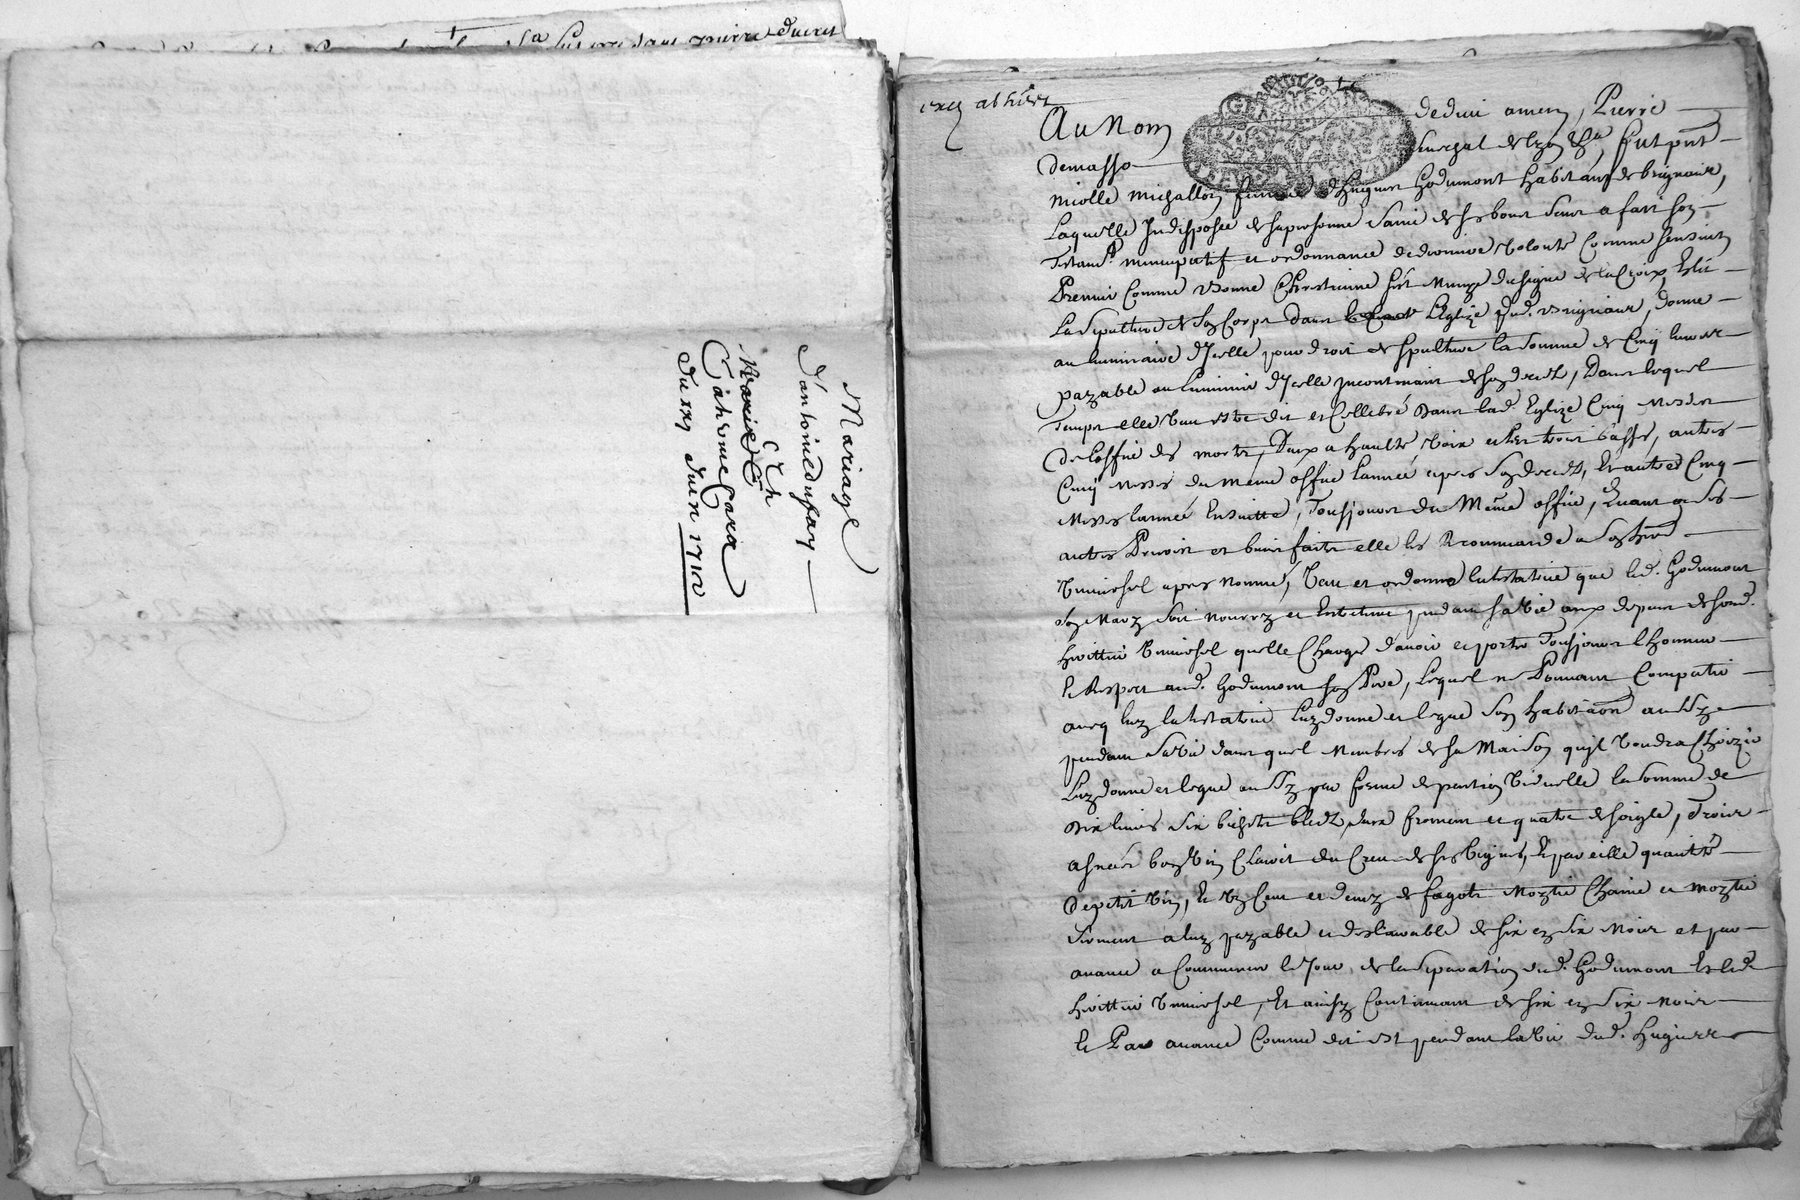 Mariage
d'antoine dufay
Et
Catherine Cara
du Juin 1712
Au Nom de dieu amen, Pierre
demasso seneschal de lyon fut pnt
michallon femme d'hugues Godumont habitant de brignais,
Laquelle Indisposée de sa personne saine de ses bons sens a fait son
nuncupatif et ordonnance de derniere volonté Comme sensuit
Premier Comme bonne Chrestienne sest Munye du signe de la Croix, Eslit
La sepulture de son Corps dans L'Eglize dud. brignais, donne
au luminaire d'Icelle pour droit de sepulture la somme de Cinq livres
payable au luminier d'Icelle Incontinant de son decedz, Dans lequel
Temps elle veut estre dit et Cellebré dans lad. Eglize Cinq Messes
de loffice des morts, Deux a haulte voix et les trois basses, autres
Cinq Messes du meme office lannée apres son decedz, Et autres Cinq
Messes lannée Ensuitte, Tousjours du Même office, Quant a ses
autres Prieres et bienfaits elle les Recommande a son
Universel apres nommé, Veut et ordonne la testatrice que led. Godumont
son Mary soit nourry et Entretenu pendant sa vie aux depens de sond.
heritier Universel quelle Charge davoir et porter Tousjours lhonneur
le Respect aud. Godumont son Pere, lequel ne Pouvant Compatir
avec luy la testatrice luy donne et legue son habitaon aussy
pendant sa vie dans quel Membres de sa Maison quil voudra Choizir
Luy donne et legue aussy par forme de pention viduelle la somme de
dix livres six bichets bledz, deux froment et quatre de soigle, Trois
asnées bon vin Clairet du Creu de ses vignes, Et pareille quantité
de petit vin, Et Un Cent et demy de fagots Moytié Chaine et moytié
sirment a luy payable et deslivrable de six en six Mois et par
avance a Commencer le Jour de la separation dud. Godumont Et led.
heritier Universel, Et ainsy Continuant de six en six mois
Et Par avance Comme dit est pendant la vie dud. hugues